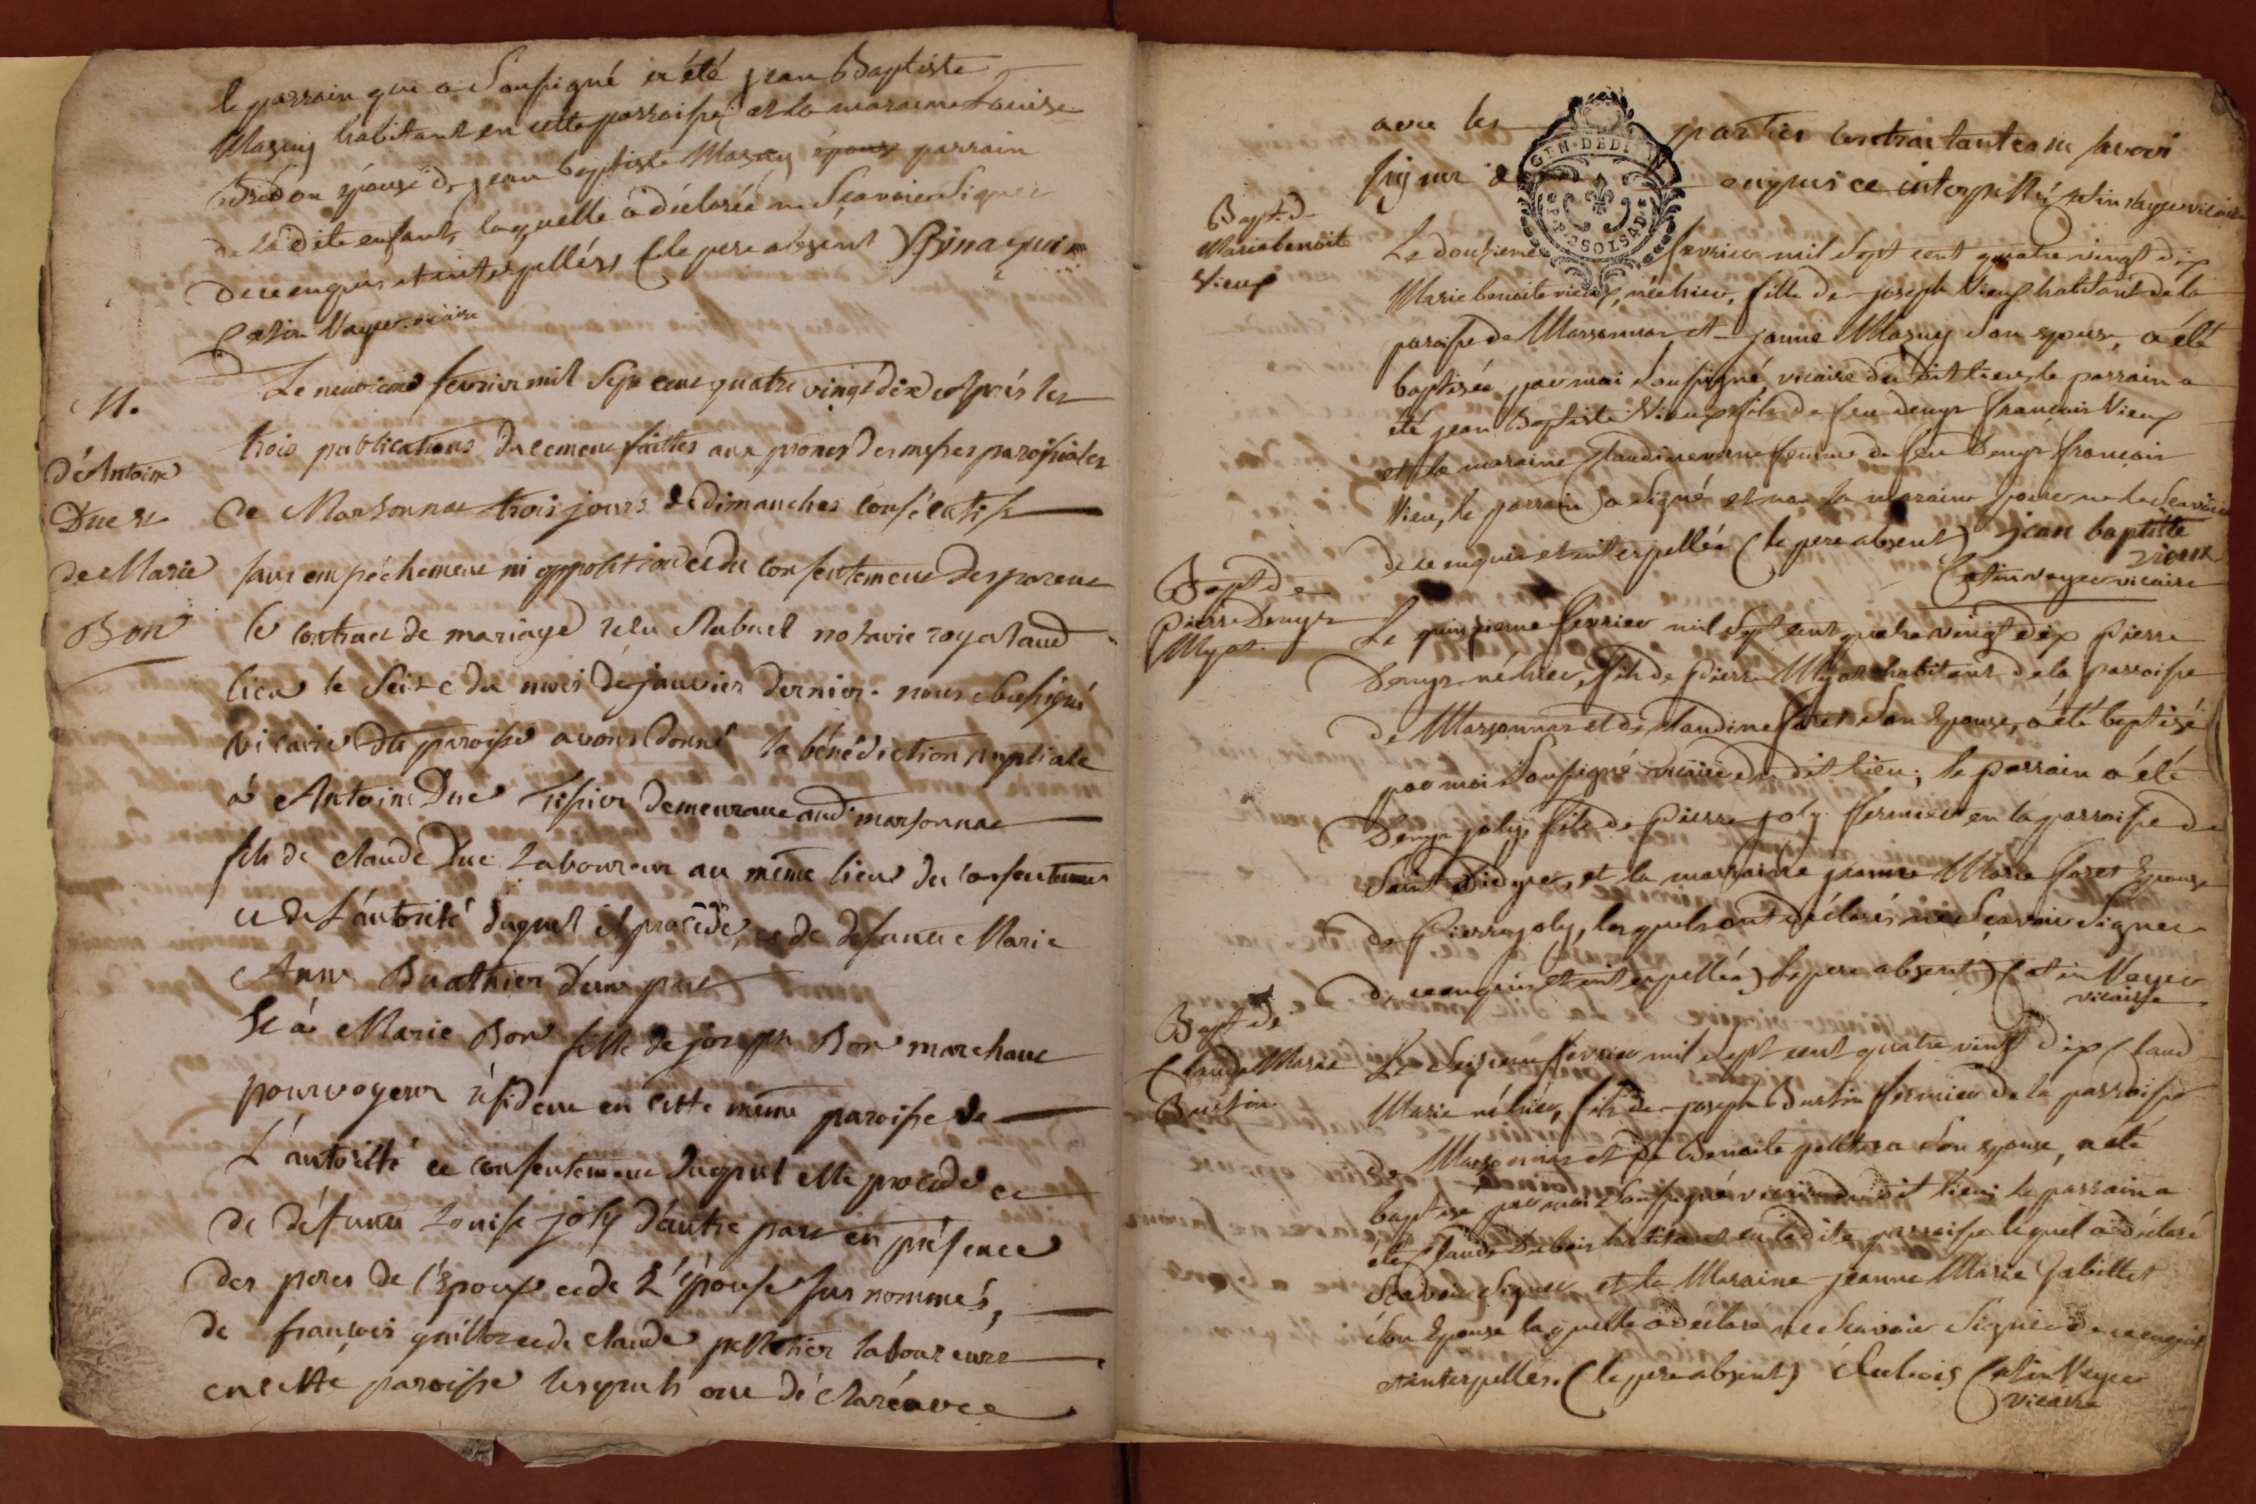 le parrain qui a Soussigné a été jean Baptiste
Maguy habitant en cette parroisse, et la maraine Louise
épouse de jean baptiste Maguy parrain
de la dite enfant, laquelle a déclarée ne Scavoir Signer
de ce enquis et interpellés (le pere absent)
Catin Vayer vicaire
M.
d'Antoine
Duc et
de Marie
Bon
Le neuvieme fevrier mil Sept cent quatre vingt dix Après les
trois publications duement faittes aux prones des messes paroissiales
de Marsonnas trois jours de dimanches consécutifs
sans empêchement ni opposition et du consentement des parens
le contract de mariage reçu notaire royal aud
lieu le Seize du mois de janvier dernier. nous Soussigné
vicaire de paroisse avons donné la bénédiction nuptiale
à Antoine Duc Tissier demeurant aud marsonnas
fils de Claude Duc Laboureur au même lieu du consentement
et de L'autorité duquel il procède, et de defunte Marie
Anne Buathier d'une part
Et à Marie Bon fille de joseph Bon marchand
pourvoyeur résident en cette même paroisse de
L'autorité et consentement duquel elle procède et
de défunte Louise joly d'autre part en présence
des peres de l'Epoux et de L'épouse sus nommés,
de françois guillot et de Claude pelletier laboureurs
en cette paroisse lesquels ont déclaré avec
avec les parties contractantes ne scavoir
signer de enquis et interpellé Catin Vayer vicaire
GEN·DE DIJON
Bapt. de
Marie benoite
Vieux
Le douzieme fevrier mil Sept cent quatre vingt dix
Marie benoite vieux, née hier, fille de joseph Vieux habitant de la
paroisse de Marsonnas et janne Maguy son epouse, a été
baptisée par moi Soussigné vicaire du dit lieu, le parrain a
été jean Baptiste Vieux fils de feu denys françois Vieux
et la maraine Claudine femme de feu Denys françois
Vieux, le parrain a signé et non la maraine pour ne le Scavoir
de ce enquis et interpellée (le pere absent) jean baptiste
vieux
Catin vayer vicaire
Bapt de
pierre Denys
Myot
Le quinzieme fevrier mil Sept cent quatre vingt dix pierre
Denys né hier, fils de pierre Myot habitant de la parroisse
de Marsonnas et de Claudine Son Epouse, a été baptisé
par moi Soussigné vicaire du dit lieu; le parrain a été
Denys joly fils de pierre joly fermier en la parroisse de
Saint Didyer, et la marraine jeanne Marie Epouse
de pierre joly, lesquels ont déclarés ne Scavoir Signer
de ce enquis et interpellés (le pere absent) Catin Vayer
vicaire
Bapt de
Claude Marie
Burtin
Le Seizieme fevrier mil Sept cent quatre vingt dix Claude
Marie né hier, fils de joseph Burtin fermier de la parroisse
de Marsonnas et de Benoite Son epouse, a été
baptisé par moi Soussigné vicaire du dit lieu; le parrain a
été Claude Dubois habitant en la dite parroisse lequel a déclaré
Scavoir Signer, et la Maraine jeanne Marie
Son Epouse laquelle a déclaré ne Scavoir Signer de ce enquis
et interpellés. (le pere absent) Dubois Catin Vayer
vicaire